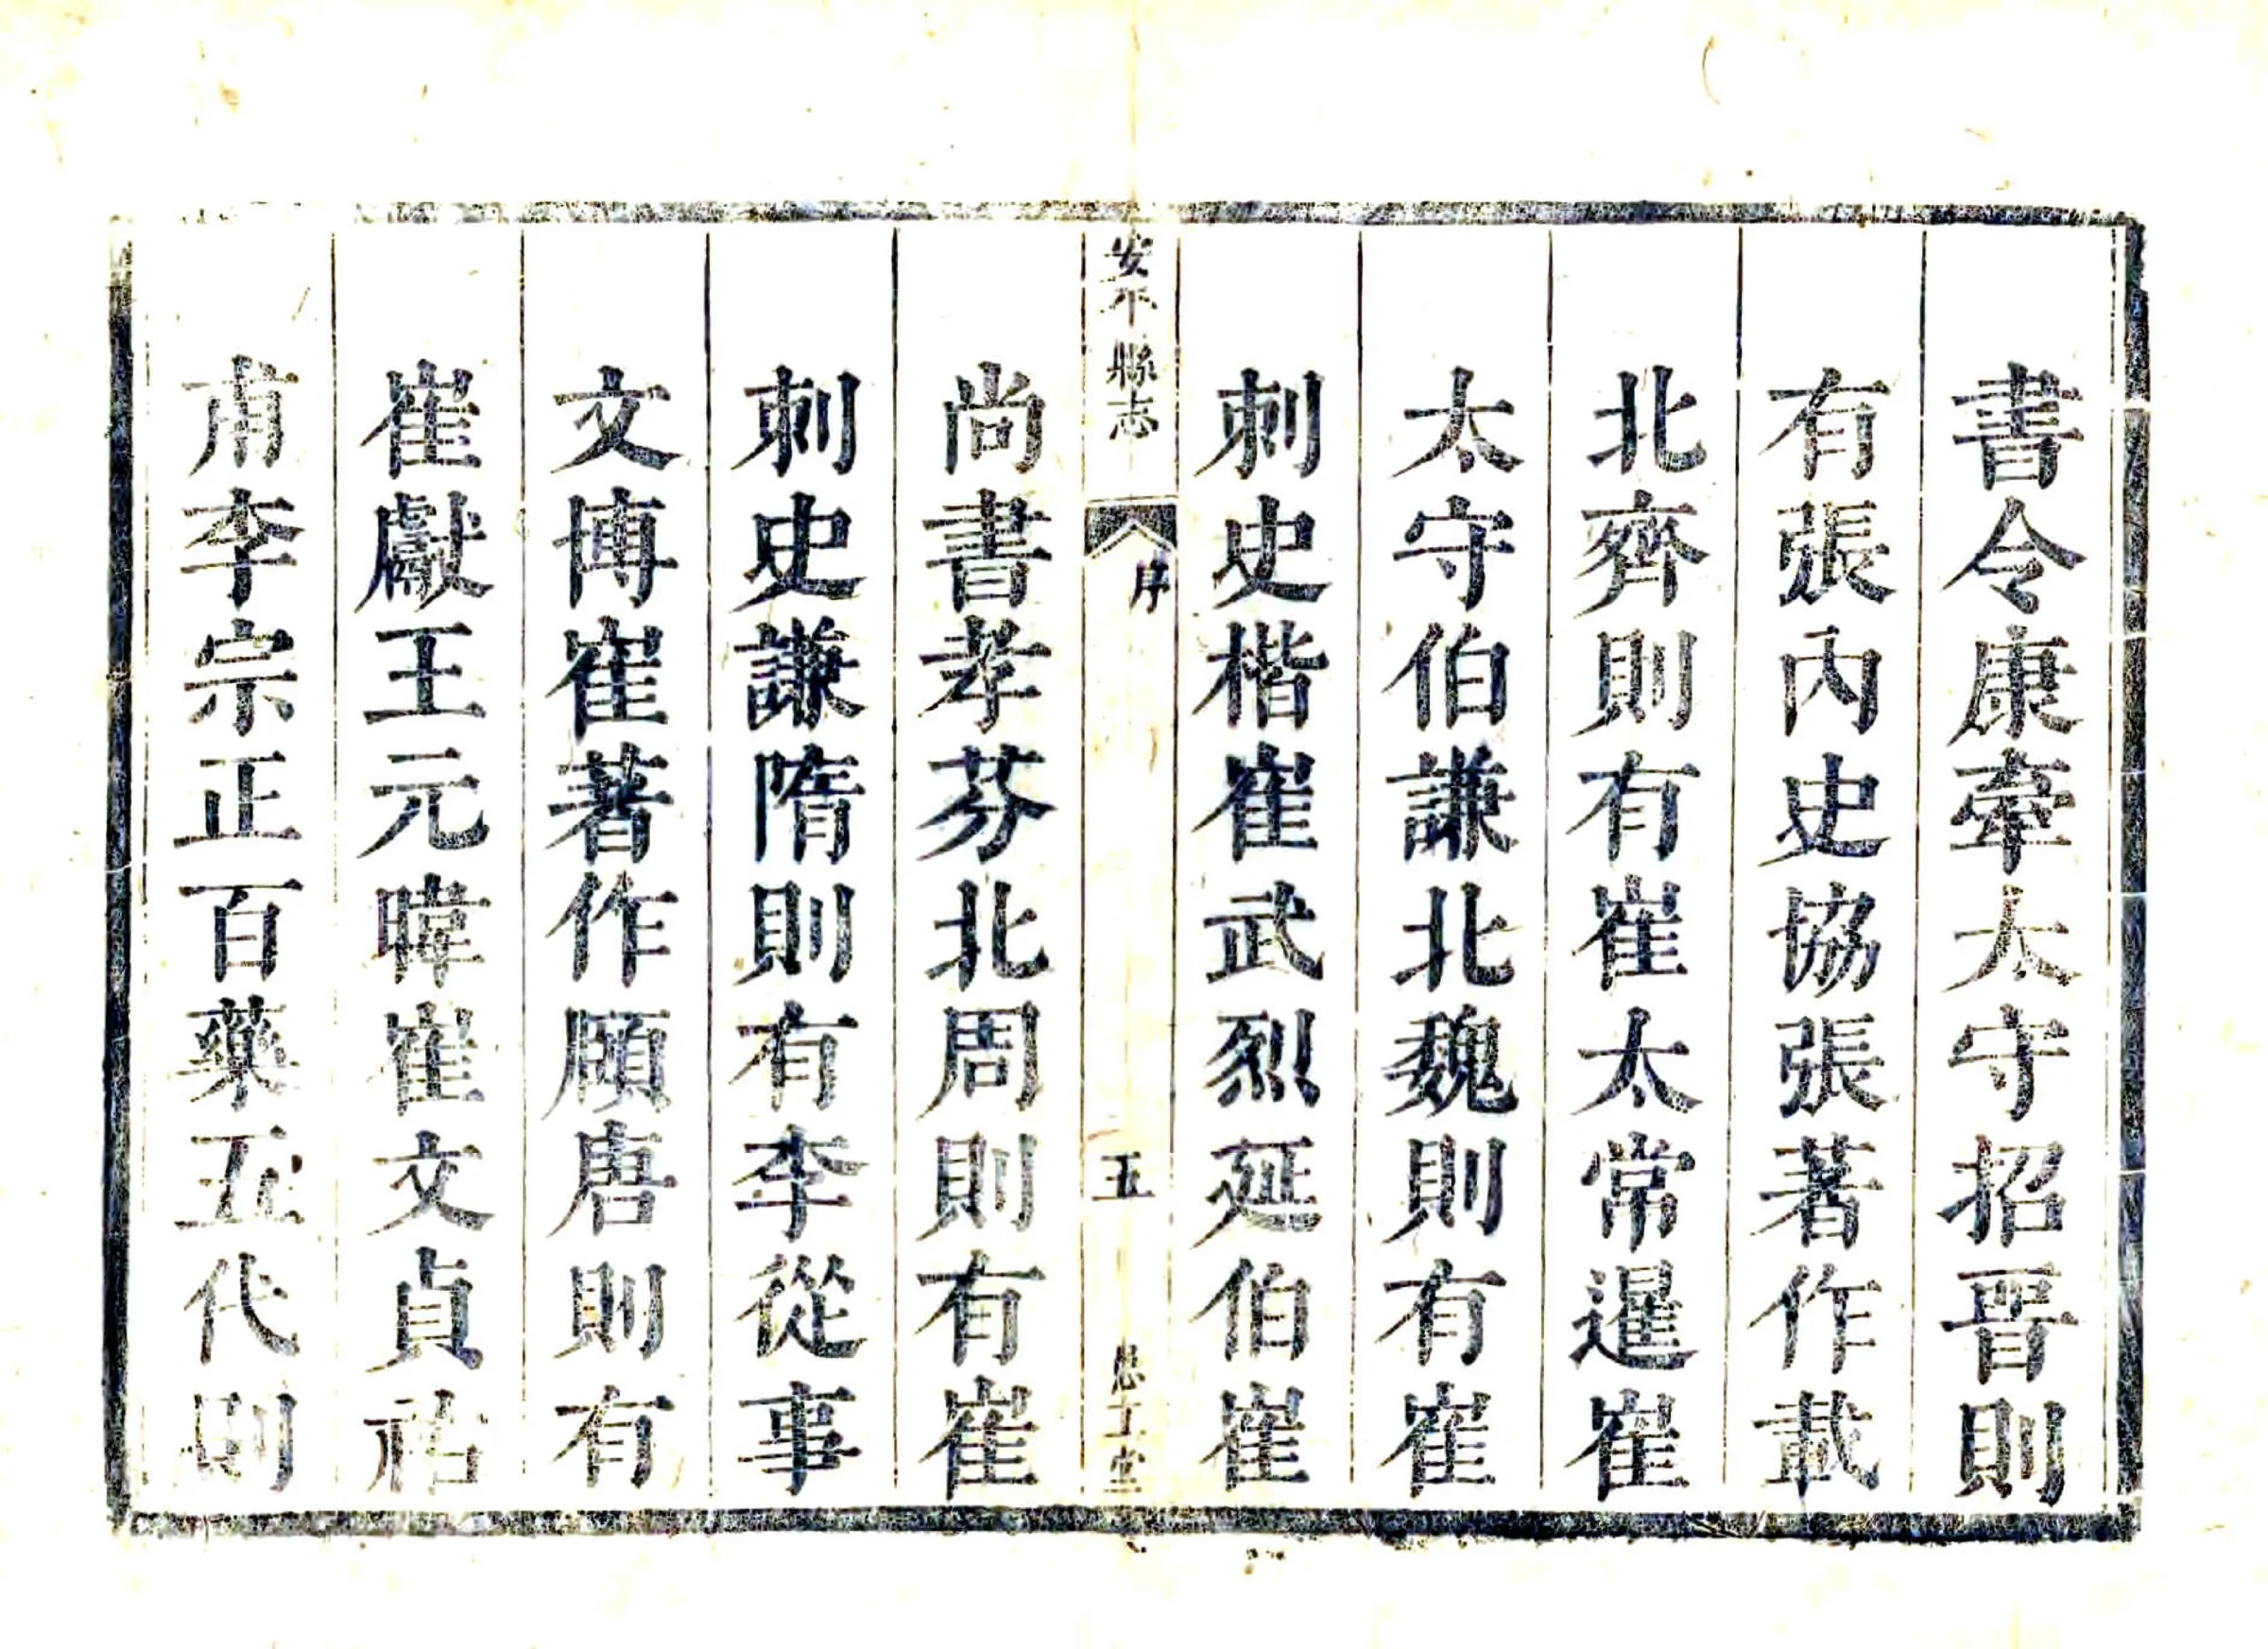 書令康牽太守招晋則
有張內史協張著作載
北齊則有崔太常暹崔
太守伯謙北魏則有崔
刺史楷崔武烈延伯崔
安平縣志
序
五
思工堂
尚書孝芬北周則有崔
刺史謙隋則有李從事
文博崔著作願唐則有
崔獻王元暐崔文貞祐
甫李宗正百藥五代則